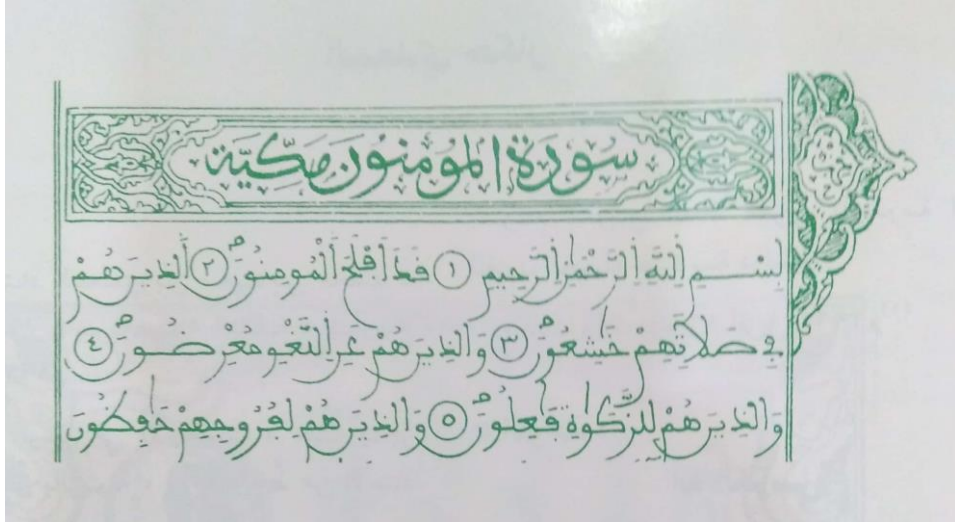 سُورَةُ الْمُومِنُونَ مَكِّيَّة
بِسْمِ اِللَّهِ اِلرَّحْمَٰنِ اِلرَّحِيمِ ١ قَدَ اَفْلَحَ اَلْمُومِنُونَ ٢ اَلذِينَ هُمْ
فِے صَلَاتِهِمْ خَٰشِعُونَ ٣ وَالذِينَ هُمْ عَنِ اِللَّغْوِ مُعْرِضُونَ ٤
وَالذِينَ هُمْ لِلزَّكَوٰةِ فَٰعِلُونَ ٥ وَالذِينَ هُمْ لِفُرُوجِهِمْ حَٰفِظُونَ